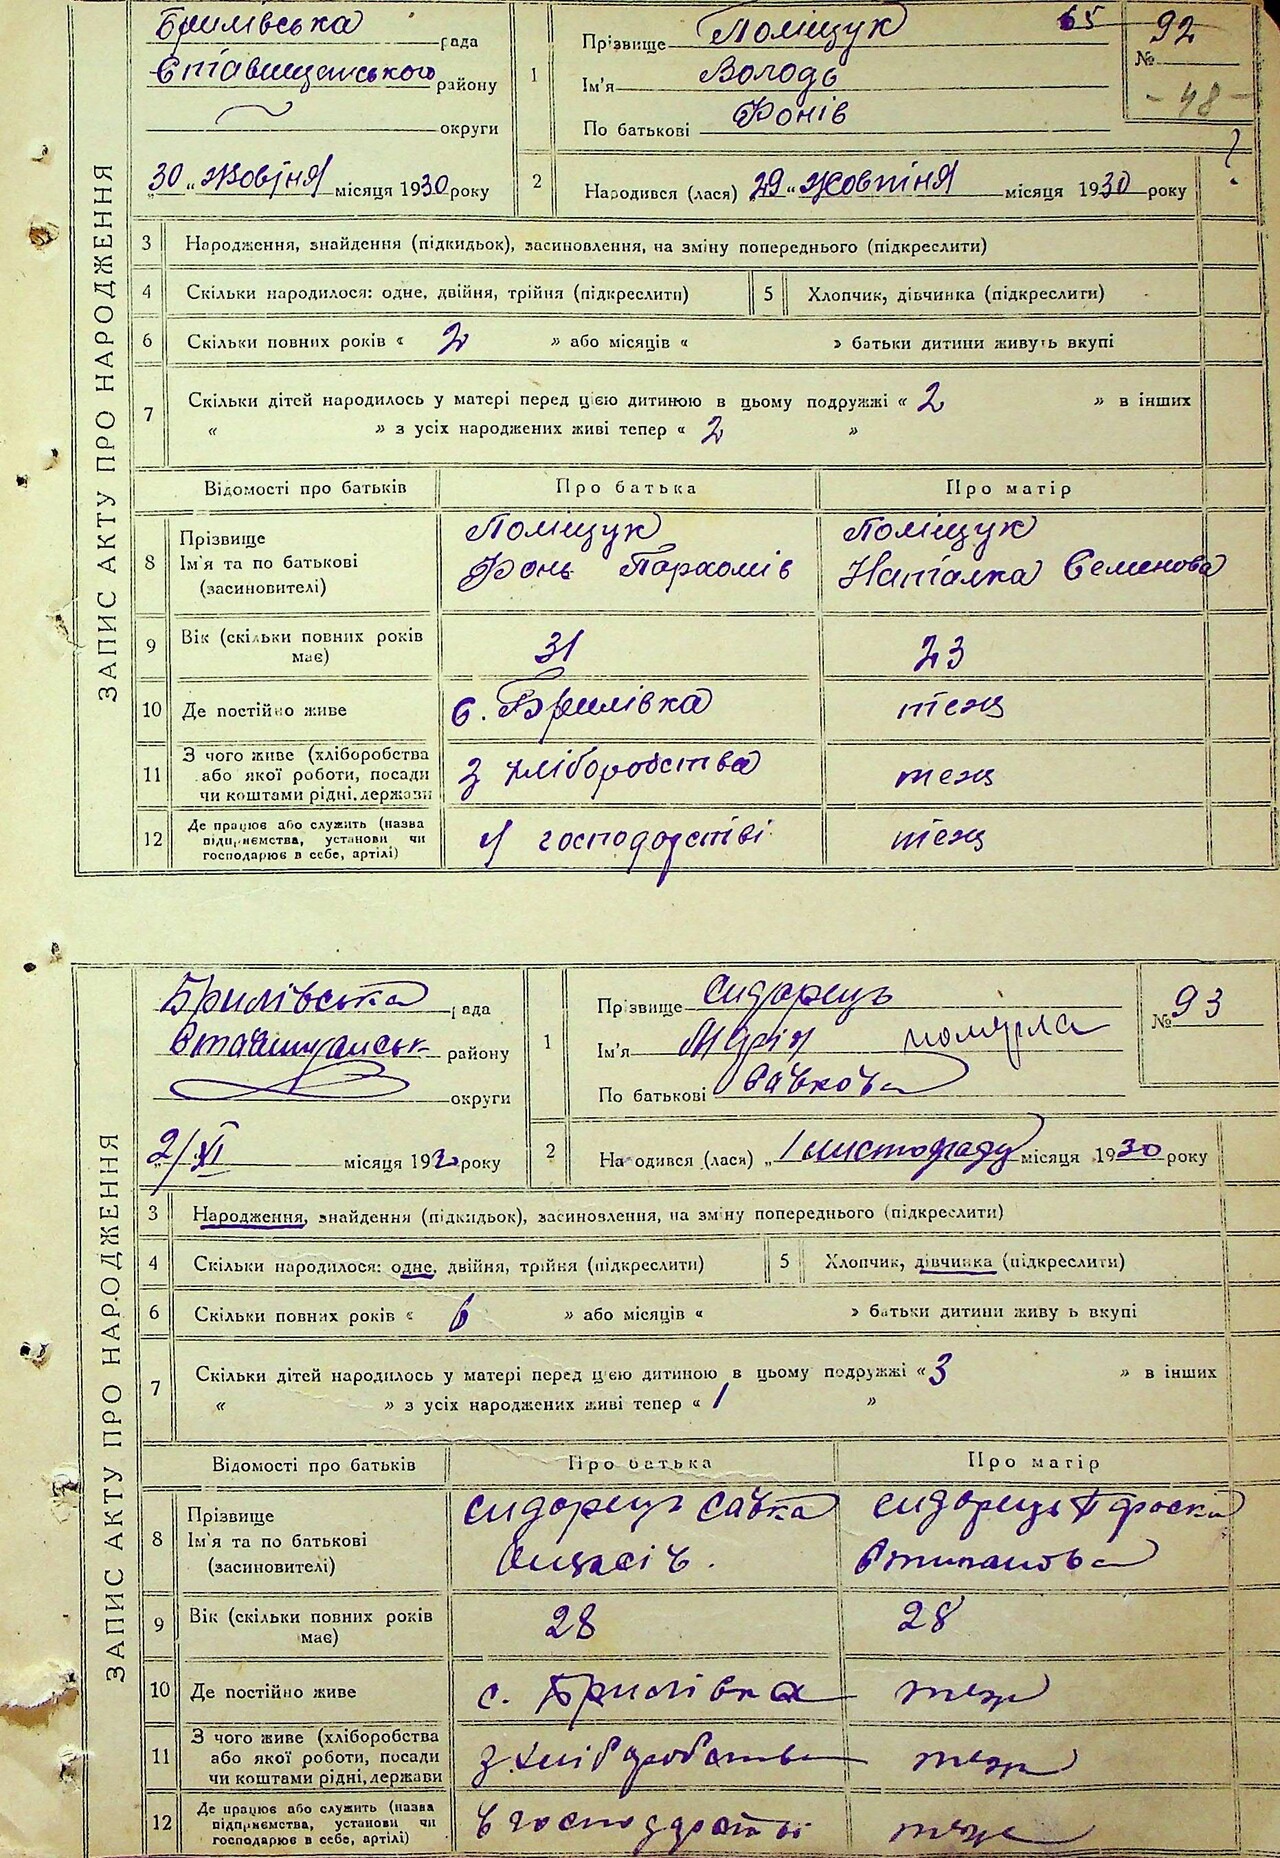 ЗАПИС АКТУ ПРО НАРОДЖЕННЯ
Брилівська рада
Ставищенського району
округи
30 „ Жовтня місяця 1930 року
1
Прізвище Поліщук
65
Ім'я Володь
По батькові Фонів
92
№
- 48 -
2
Народився (лася) 29 „ Жовтня місяця 1930 року
?
3 Народження, знайдення (підкидьок), засиновлення, на зміну попереднього (підкреслити)
4 Скільки народилося: одне, двійня, трійня (підкреслити) 5 Хлопчик, дівчинка (підкреслити)
6 Скільки повних років « 2 » або місяців « » батьки дитини живуть вкупі
7 Скільки дітей народилось у матері перед цією дитиною в цьому подружжі « 2 » в інших
« » з усіх народжених живі тепер « 2 »
Відомості про батьків Про батька Про матір
8 Прізвище Поліщук Поліщук
Ім'я та по батькові Фонь Пархомів Наталка Семенова
(засиновителі)
9 Вік (скільки повних років має) 31 23
10 Де постійно живе с. Брилівка теж
11 З чого живе (хліборобства
або якої роботи, посади з хліборобства теж
чи коштами рідні, держави
12 Де працює або служить (назва
підприємства, установи чи у господарстві теж
господарює в себе, артілі)
ЗАПИС АКТУ ПРО НАРОДЖЕННЯ
Брилівська рада
Ставищанськ району
округи
2/XI місяця 192 року
1
Прізвище Сидорець
Ім'я Марія померла
По батькові Савкова
№ 93
2
Народився (лася) „ 1 листопаду місяця 1930 року
3 Народження, знайдення (підкидьок), засиновлення, на зміну попереднього (підкреслити)
4 Скільки народилося: одне, двійня, трійня (підкреслити) 5 Хлопчик, дівчинка (підкреслити)
6 Скільки повних років « 6 » або місяців « » батьки дитини живуть вкупі
7 Скільки дітей народилось у матері перед цією дитиною в цьому подружжі « 3 » в інших
« » з усіх народжених живі тепер « 1 »
Відомості про батьків Про батька Про матір
8 Прізвище Сидорець Савка Сидорець
Ім'я та по батькові
(засиновителі)
9 Вік (скільки повних років має) 28 28
10 Де постійно живе с. Брилівка теж
11 З чого живе (хліборобства
або якої роботи, посади з хліборобства теж
чи коштами рідні, держави
12 Де працює або служить (назва
підприємства, установи чи в господарстві теж
господарює в себе, артілі)